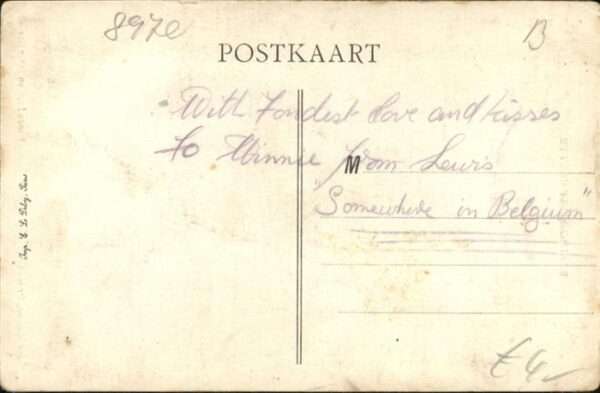 897e
B
POSTKAART
With Fondest love and kisses
to Minnie from Lewis
M
"Somewhere in Belgium"
€4-